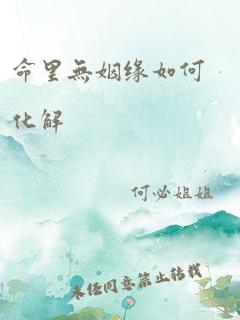 命里無姻缘如何
化解
何必姐姐
未经同意禁止转载